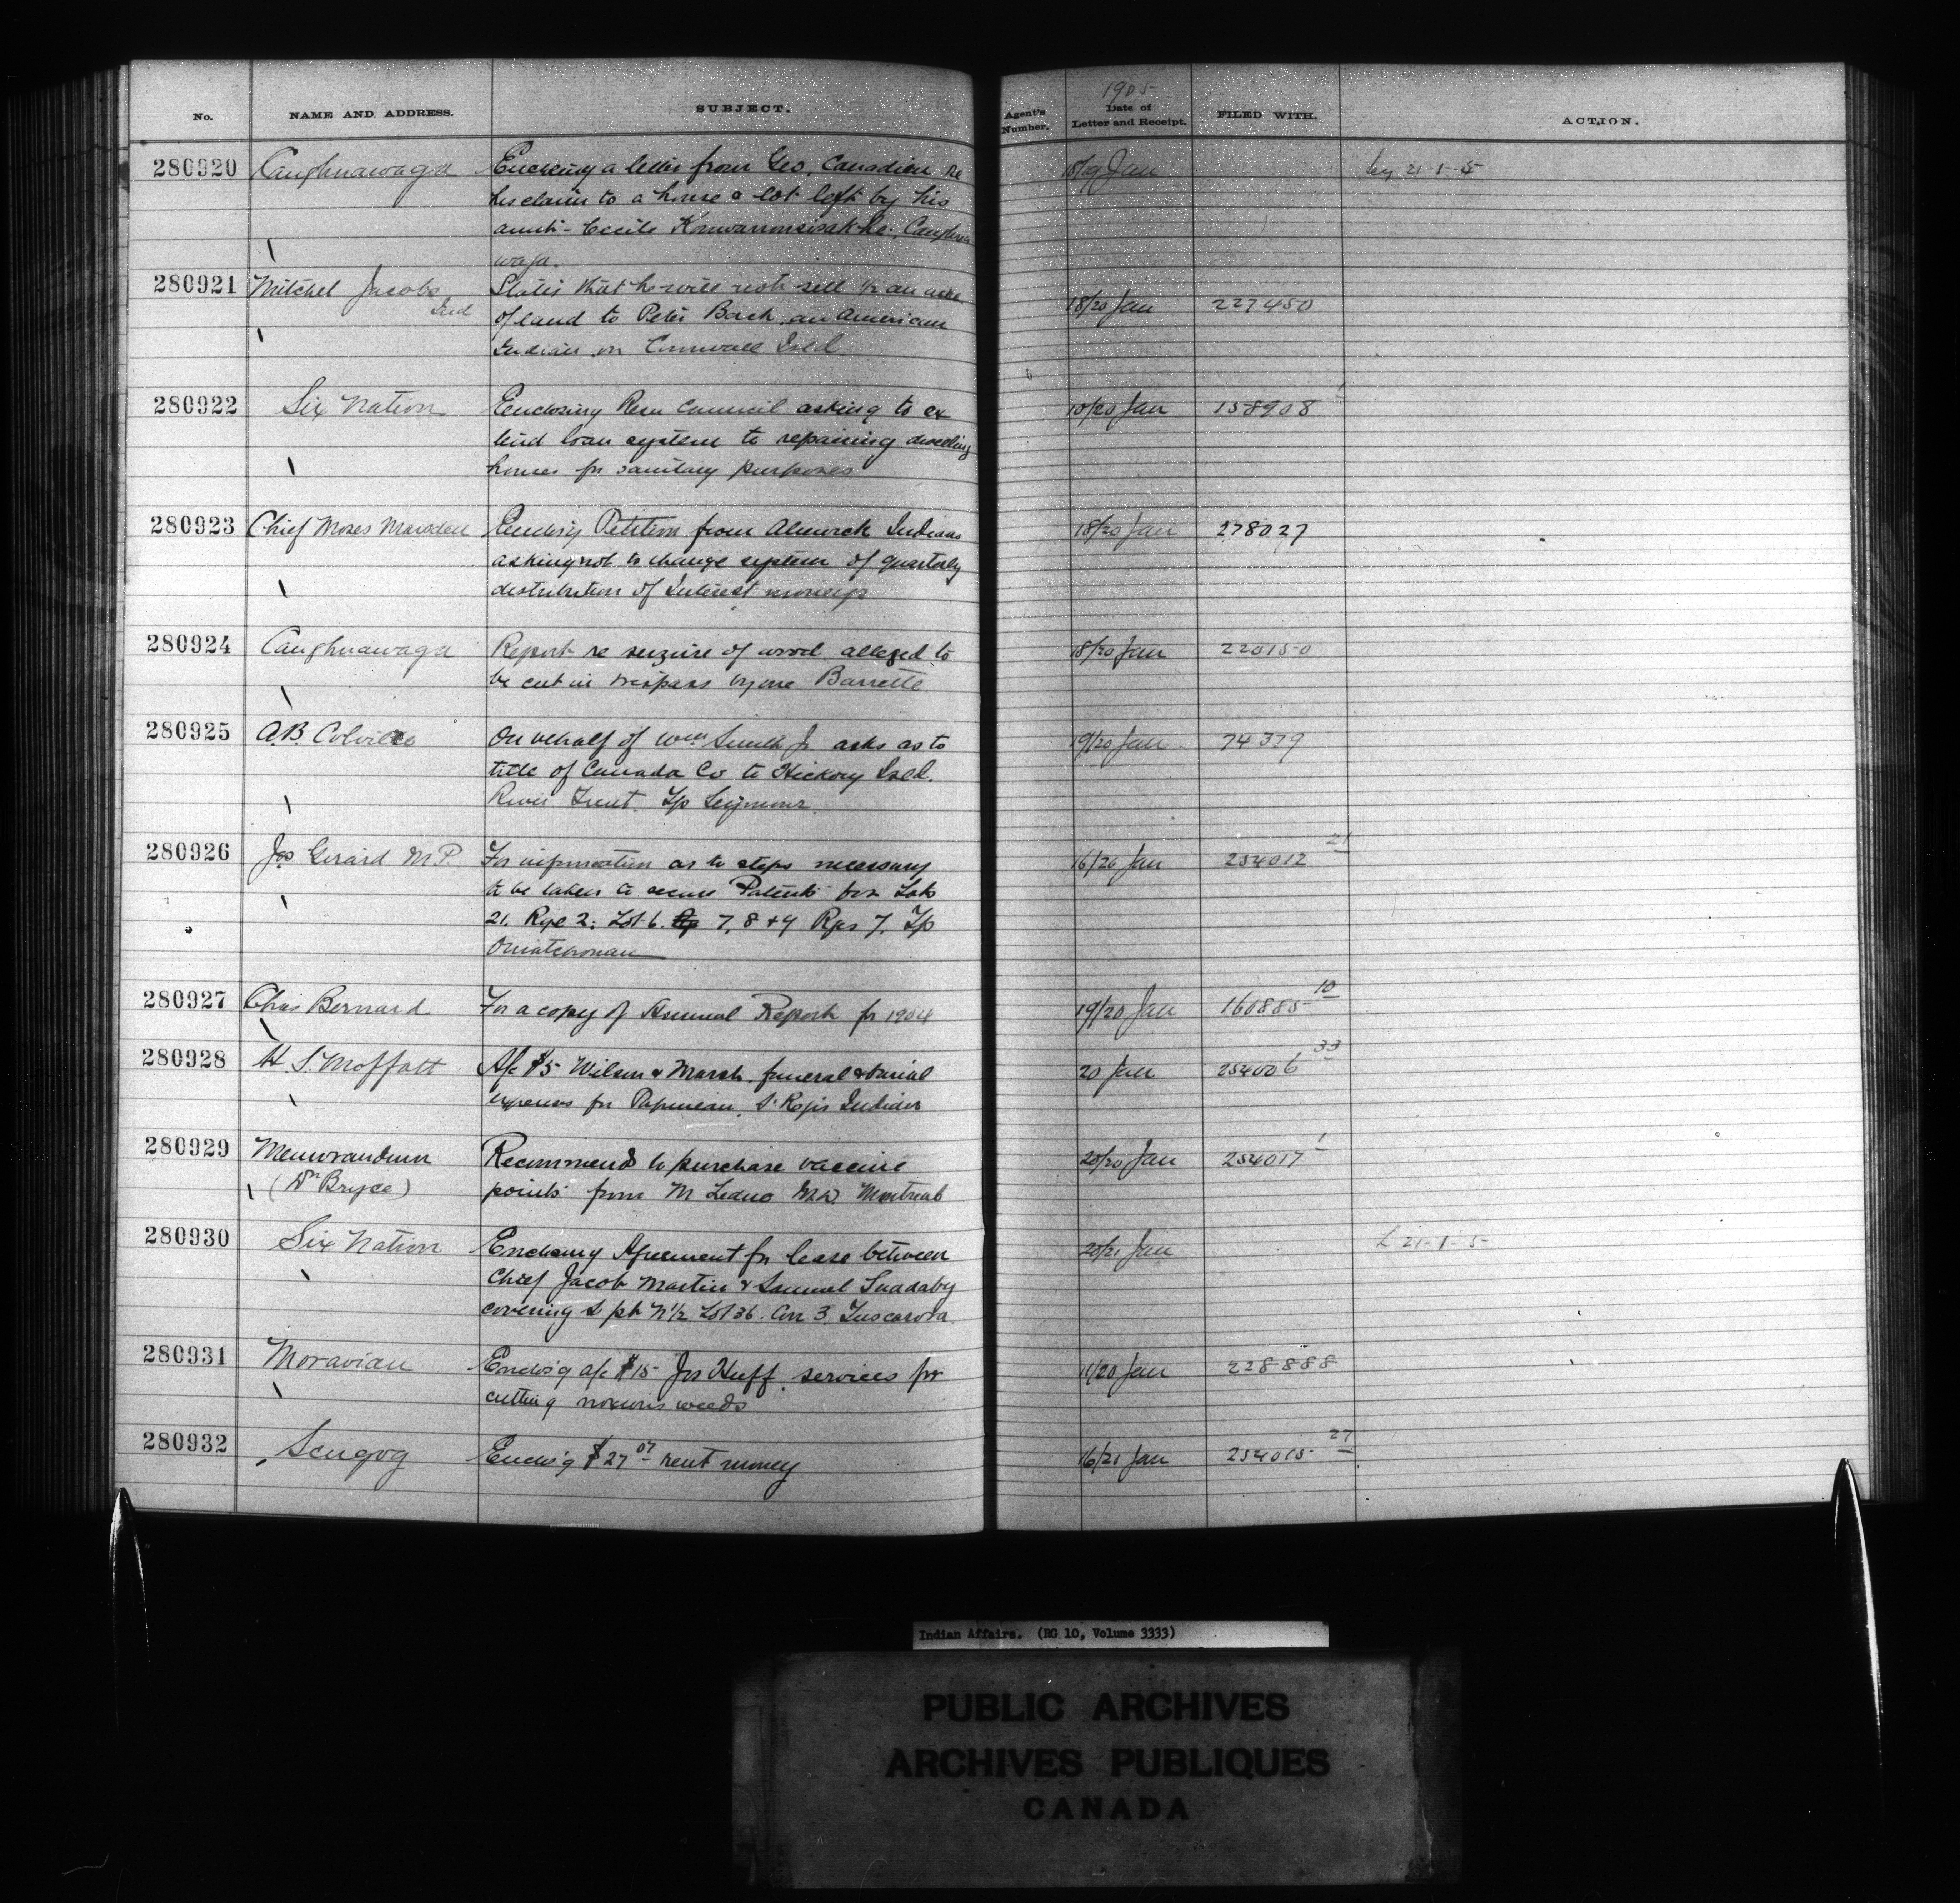 No. NAME AND ADDRESS. SUBJECT. Agent's Number. 1905 Date of Letter and Receipt. FILED WITH. ACTION.
280920 Caughnawaga Enclosing a letter from Geo. Canadian re 18/19 Jan 21-1-5
his claim to a house & lot left by his
aunt - Cecile Caughna
waga.
280921 Mitchel Jacobs States that he will not sell 1/2 an acre 18/20 Jan 227450
Ind of land to Peter Back, an American
Indian on Cornwall Isld.
280922 Six Nation Enclosing Resn Council asking to ex 10/20 Jan 158908 1
tend loan system to repairing dwelling
houses for sanitary purposes
280923 Chief Moses Marsden Enclos'g Petition from Alnwick Indians 18/20 Jan 278027
asking not to change system of quarterly
distribution of Interest moneys
280924 Caughnawaga Report re seizure of wood alleged to 18/20 Jan 220150
be cut in trespass by one Barrette
280925 A.B. Colville On behalf of Wm Smith Jr asks as to 19/20 Jan 74379
title of Canada Co to Hickory Isld.
River Trent. Tp Seymour
280926 Jos Girard M.P. For information as to steps necessary 16/20 Jan 254012 21
to be taken to secure Patents for Lots
21. Rge 2; Lot 6. 7, 8 & 9 Rgs 7, Tp
Ouiatchouan
280927 Chas Bernard For a copy of Annual Report for 1904 19/20 Jan 160885 10
280928 H S. Moffatt A/c $5 Wilson & Marsh. funeral & burial 20 Jan 254006 33
expenses for Papineau, St Regis Indian
280929 Memorandum Recommends to purchase vaccine 20/20 Jan 254017 1
(Dr Bryce) points from M M.D. Montreal
280930 Six Nation Enclosing Agreement for lease between 20/21 Jan L 21-1-5
Chief Jacob Martin & Samuel
covering S pt N 1/2 Lot 36. Con 3, Tuscarora
280931 Moravian Enclos'g a/c $15 Jos Huff, services for 11/20 Jan 228888
cutting noxious weeds
280932 Scugog Enclos'g $27 07 rent money 16/21 Jan 254015 27
Indian Affairs. (RG 10, Volume 3333)
PUBLIC ARCHIVES
ARCHIVES PUBLIQUES
CANADA